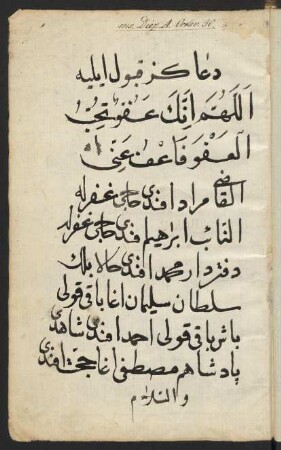 ms. Diez A. Octav. 50.
دعا كنز قبول ايليه
اَللّٰهُمَّ اِنَّكَ عَفُوٌّ تُحِبُّ
الْعَفْوَ فَاعْفُ عَنِّى
القاضى مراد افندى حاجى غفرله
النائب ابراهيم افندى حاجى غفرله
دفتردار محمد افندى حالا بلك
سلطان سليمان اغا باقى قولى
باش باقى قولى احمد افندى شاهدى
پادشاهم مصطفى اغا افندى
والسلام م